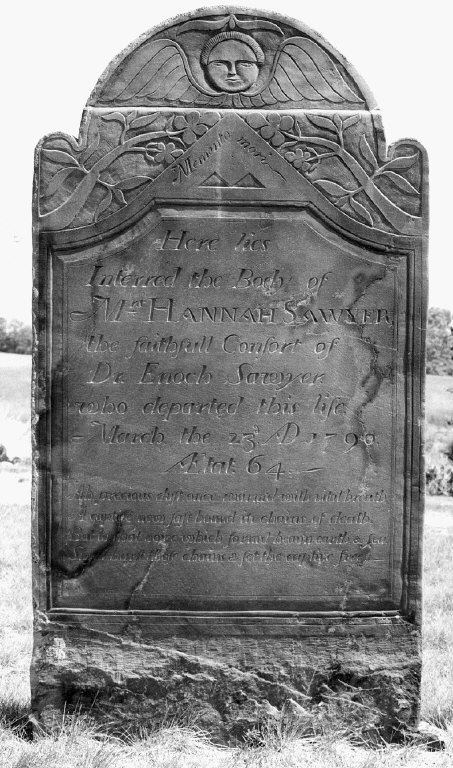 Memento mori.
Here lies
Interred the Body of
Mrs HANNAH SAWYER
the faithfull Consort of
Dr Enoch Sawyer
who departed this life
March the 23d AD 1790
Ætat 64
precious dust once warm'd with vital breath
now fast bound in chains of death.
But voice which form'd heav'n earth & sea
these chains & set the captive free